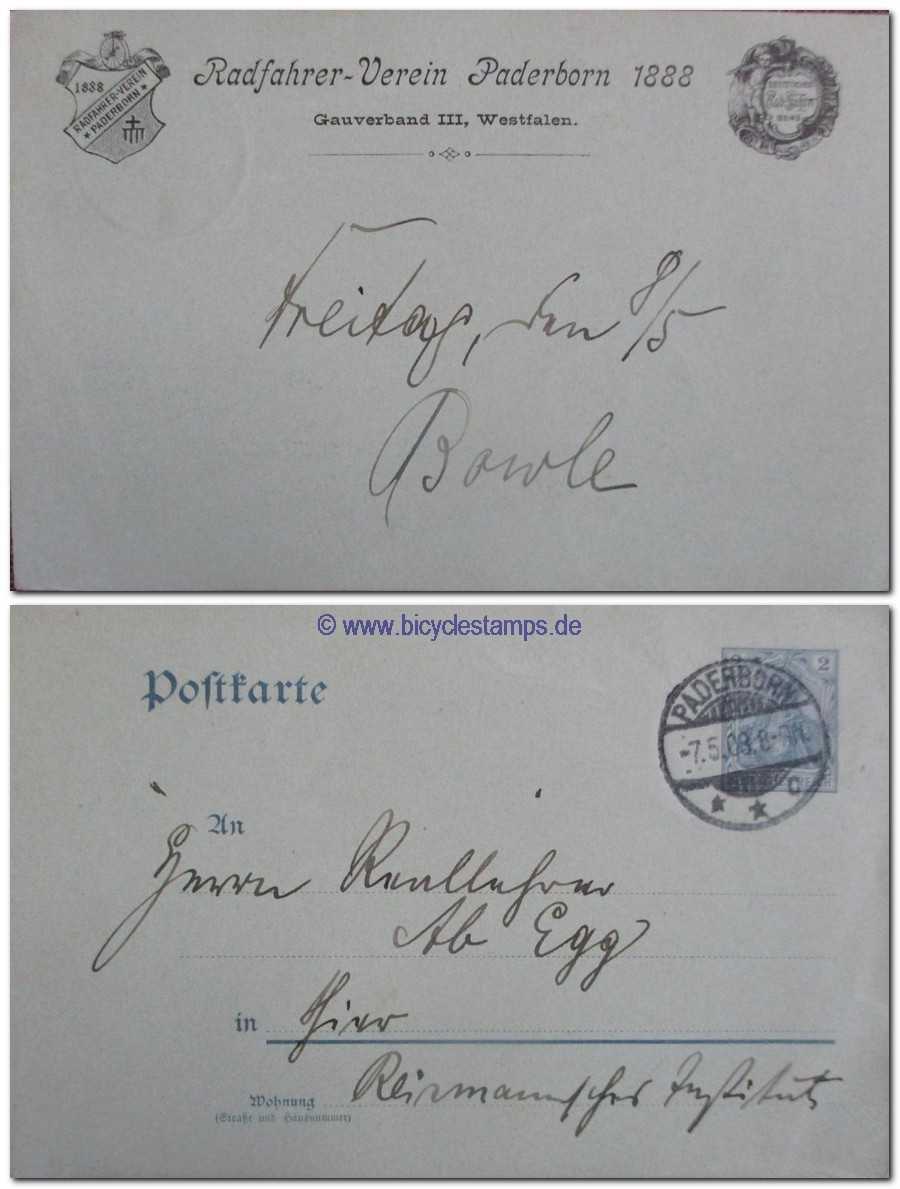 1888
RADFAHRER-VEREIN
PADERBORN
Radfahrer-Verein Paderborn 1888
Gauverband III, Westfalen.
Freitag, den 8/5
Bowle
© www.bicyclestamps.de
Poſtkarte
2
PADERBORN
-7.5.03.8-9N.
C
An
Herrn Reallehrer
Ab Egg
in Hier
Wohnung Reismannsches Institut
(Straße und Hausnummer)